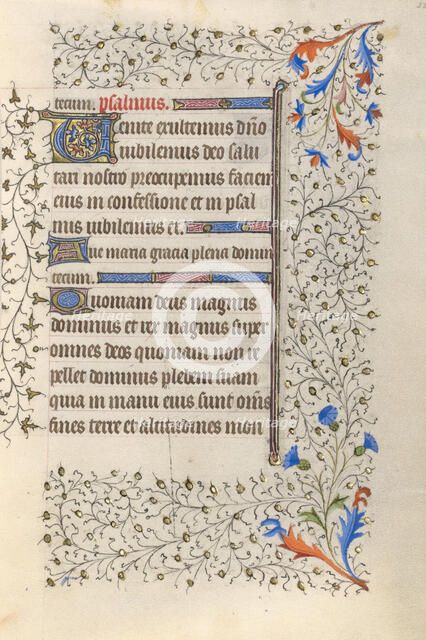 tecum. psalmus.
Venite exultemus dño
iubilemus deo salu
tari nostro preocupemus faciem
eius in confessione et in psal
mis iubilemus ei.
Aue maria gracia plena domin
tecum.
Quoniam deus magnus
dominus et rex magnus super
omnes deos quoniam non re
pellet dominus plebem suam
quia in manu eius sunt oms
fines terre et altitudines mon
Heritage
Images